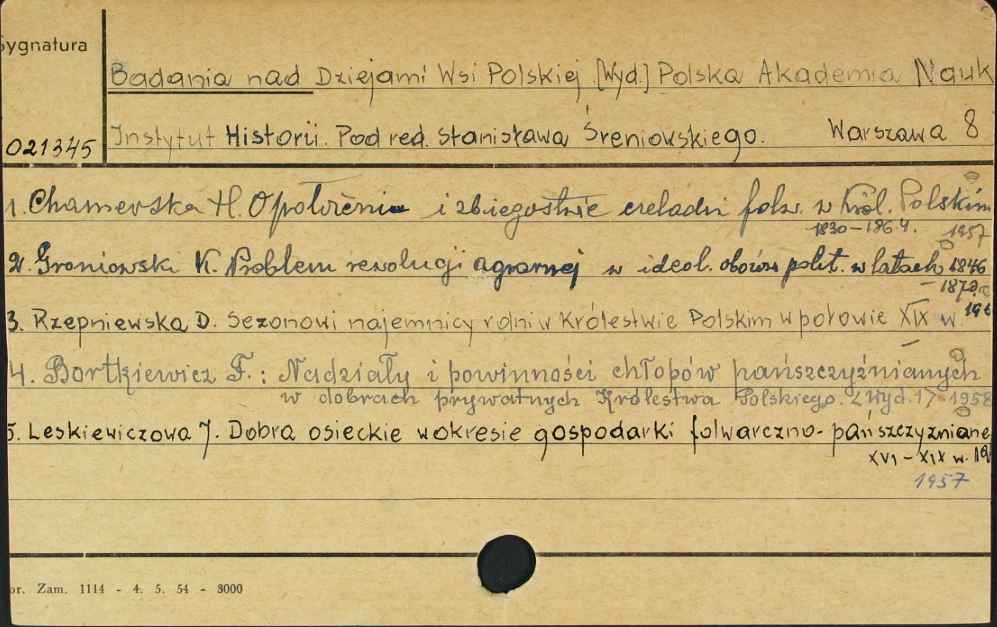 Sygnatura
Badania nad Dziejami Wsi Polskiej [Wyd.] Polska Akademia Nauk
021345 Instytut Historii. Pod red. Stanisława Śreniowskiego. Warszawa 8
1. Chamerska H. O położeniu i zbiegostwie czeladzi folw. w Król. Polskim
1830-1864. 1957
2. Groniowski K. Problem rewolucji agrarnej w ideol. obozów polit. w latach 1846
- 1870
3. Rzepniewska D. Sezonowi najemnicy rolni w Królestwie Polskim w połowie XIX w.
4. Bortkiewicz F.: Nadziały i powinności chłopów pańszczyźnianych
w dobrach prywatnych Królestwa Polskiego. Wyd. 1958
5. Leskiewiczowa J. Dobra osieckie w okresie gospodarki folwarczno-pańszczyźniane
XVI-XIX w.
1957
or. Zam. 1114 - 4. 5. 54 - 3000